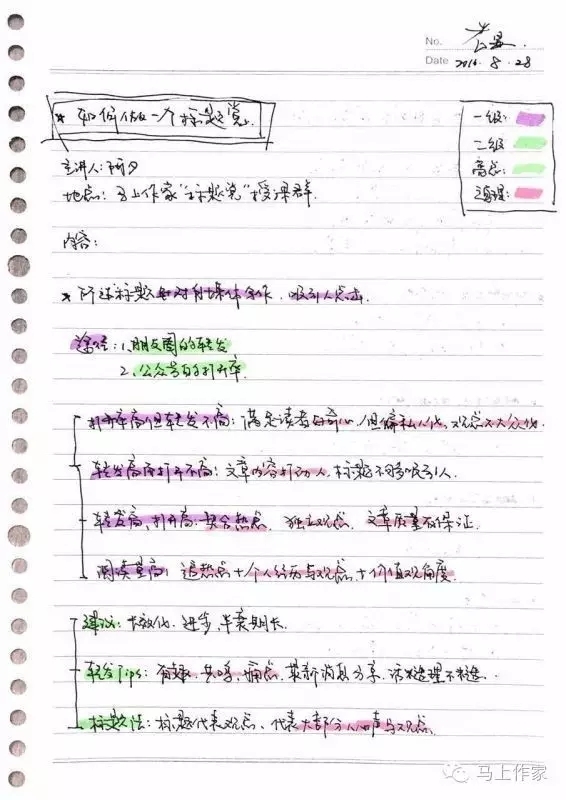 No.
Date 2016.8.28
* 如何做一个标题党
一级:
二级
高亮:
主讲人:阿夕
地点:马上作家"标题党"授课群
内容:
* 所谓标题针对自媒体写作,吸引人点击.
途径:1.朋友圈的转发
2.公众号的打开率.
打开率高但转发不高:满足读者好奇心,但偏私人化,观点不大众化
转发高而打开不高:文章内容打动人,标题不够吸引人
转发高,打开高:契合热点、独立观点、文章质量有保证.
阅读量高:追热点+个人经历与观点+价值观角度.
建议:长效化、进步,半衰期长.
转发Tips:有趣、共鸣、痛点、最新消息分享、话糙理不糙.
标题法:标题代表观点、代表大部分人心声与观点.
马上作家